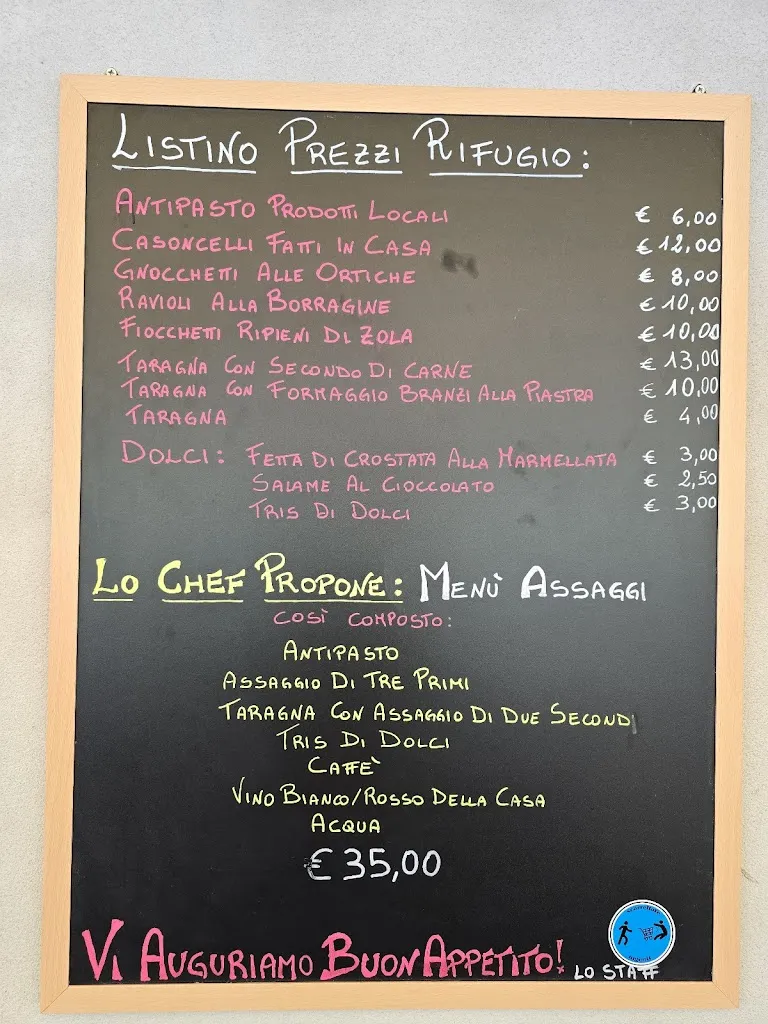 LISTINO PREZZI RIFUGIO:
ANTIPASTO PRODOTTI LOCALI € 6,00
CASONCELLI FATTI IN CASA € 12,00
GNOCCHETTI ALLE ORTICHE € 8,00
RAVIOLI ALLA BORRAGINE € 10,00
FIOCCHETTI RIPIENI DI ZOLA € 10,00
TARAGNA CON SECONDO DI CARNE € 13,00
TARAGNA CON FORMAGGIO BRANZI ALLA PIASTRA € 10,00
TARAGNA € 4,00
DOLCI: FETTA DI CROSTATA ALLA MARMELLATA € 3,00
SALAME AL CIOCCOLATO € 2,50
TRIS DI DOLCI € 3,00
LO CHEF PROPONE: MENÙ ASSAGGI
COSÌ COMPOSTO:
ANTIPASTO
ASSAGGIO DI TRE PRIMI
TARAGNA CON ASSAGGIO DI DUE SECONDI
TRIS DI DOLCI
CAFFÈ
VINO BIANCO/ROSSO DELLA CASA
ACQUA
€ 35,00
VI AUGURIAMO BUON APPETITO! LO STAFF